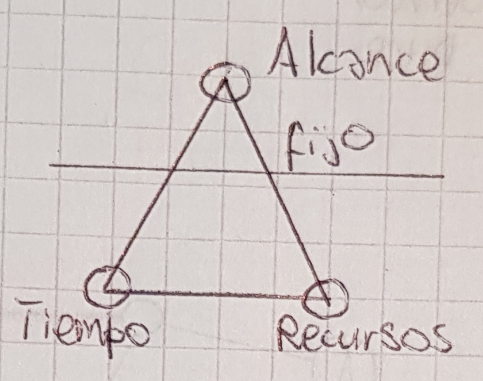 Alcance
fijo
Tiempo
Recursos